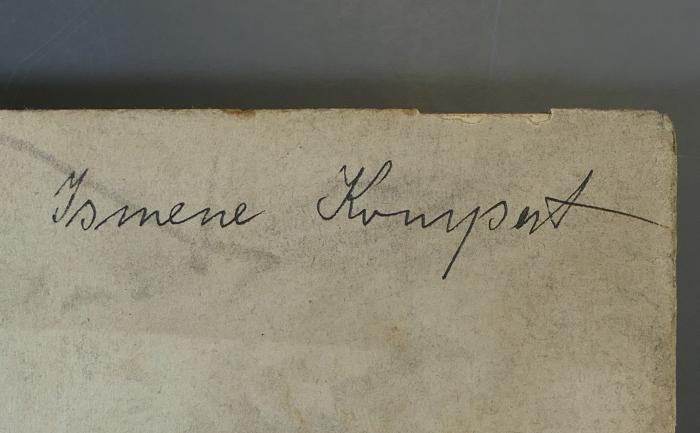 Ismene Kompert